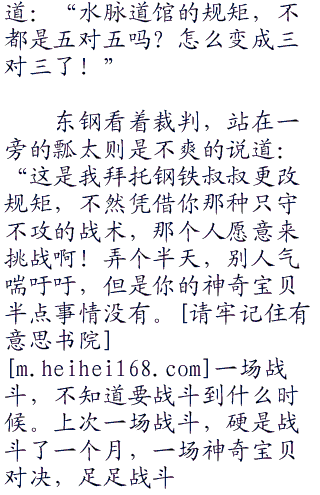 道：“水脉道馆的规矩，不
都是五对五吗？怎么变成三
对三了！”
东钢看着裁判，站在一
旁的瓢太则是不爽的说道：
“这是我拜托钢铁叔叔更改
规矩，不然凭借你那种只守
不攻的战术，那个人愿意来
挑战啊！弄个半天，别人气
喘吁吁，但是你的神奇宝贝
半点事情没有。[请牢记住有
意思书院]
[m.heihei168.com]一场战
斗，不知道要战斗到什么时
候。上次一场战斗，硬是战
斗了一个月，一场神奇宝贝
对决，足足战斗